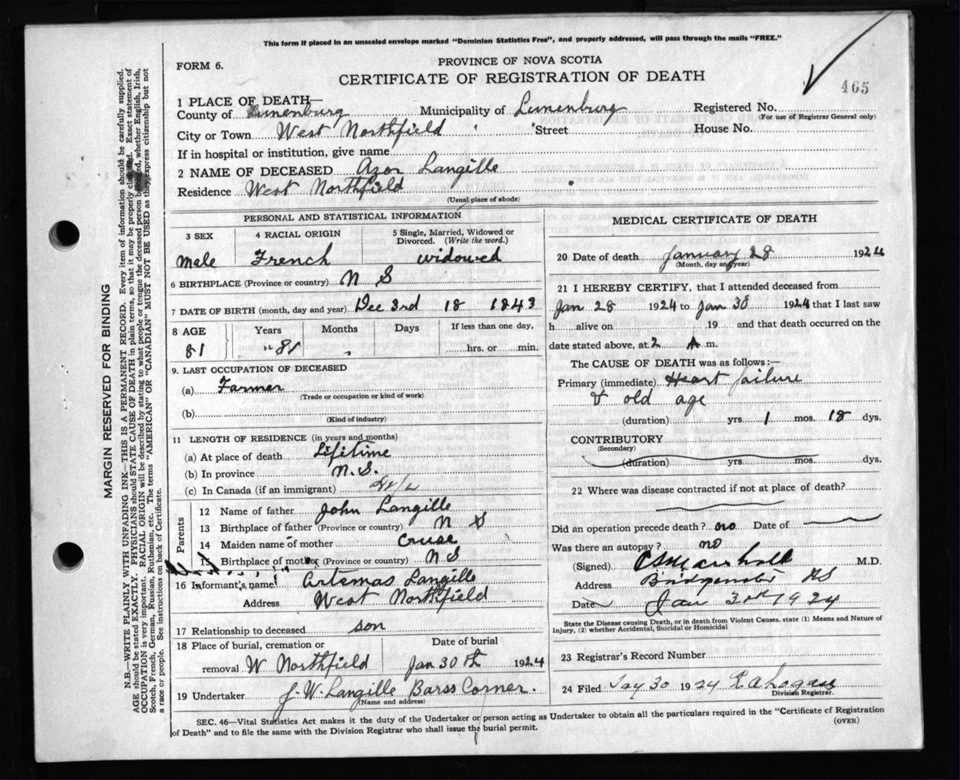 This form if placed in an unsealed envelope marked "Dominion Statistics Free", and properly addressed, will pass through the mails "FREE."
FORM 6.
PROVINCE OF NOVA SCOTIA
CERTIFICATE OF REGISTRATION OF DEATH
465
1 PLACE OF DEATH—
County of Lunenburg Municipality of Lunenburg Registered No.
(For use of Registrar General only)
City or Town West Northfield Street House No.
If in hospital or institution, give name
2 NAME OF DECEASED Azor Langille
Residence West Northfield
(Usual place of abode)
PERSONAL AND STATISTICAL INFORMATION
3 SEX 4 RACIAL ORIGIN 5 Single, Married, Widowed or Divorced. (Write the word.)
Male French widowed
6 BIRTHPLACE (Province or country) N S
7 DATE OF BIRTH (month, day and year) Dec 3rd 18 1843
8 AGE Years Months Days If less than one day,
81 "81 hrs. or min.
9. LAST OCCUPATION OF DECEASED
(a) Farmer
(Trade or occupation or kind of work)
(b)
(Kind of industry)
11 LENGTH OF RESIDENCE (in years and months)
(a) At place of death Lifetime
(b) In province N.S.
(c) In Canada (if an immigrant)
Parents
12 Name of father John Langille
13 Birthplace of father (Province or country) N S
14 Maiden name of mother Cruse
15 Birthplace of mother (Province or country) N S
16 Informant's name Artemas Langille
Address West Northfield
17 Relationship to deceased son
18 Place of burial, cremation or Date of burial
removal W Northfield Jan 30th 1924
19 Undertaker J. W. Langille Barss Corner.
(Name and address)
MEDICAL CERTIFICATE OF DEATH
20 Date of death January 28 1924
(Month, day and year)
21 I HEREBY CERTIFY, that I attended deceased from
Jan 28 1924 to Jan 30 1924 that I last saw
h alive on , 19 and that death occurred on
date stated above, at 2 A m.
The CAUSE OF DEATH was as follows:—
Primary (immediate) Heart failure
& old age
(duration) yrs. 1 mos. 18 dys.
CONTRIBUTORY
(Secondary)
(duration) yrs. mos. dys.
22 Where was disease contracted if not at place of death?
Did an operation precede death? no Date of
Was there an autopsy? no
(Signed) M.D.
Address Bridgewater NS
Date Jan 30th 1924
State the Disease causing Death, or in death from Violent Causes, state (1) Means and Nature of
Injury, (2) whether Accidental, Suicidal or Homicidal
23 Registrar's Record Number
24 Filed 30 1924
Division Registrar.
SEC. 46—Vital Statistics Act makes it the duty of the Undertaker or person acting as Undertaker to obtain all the particulars required in the "Certificate of Registration
of Death" and to file the same with the Division Registrar who shall issue the burial permit.
(OVER)
MARGIN RESERVED FOR BINDING
N.B.—WRITE PLAINLY WITH UNFADING INK—THIS IS A PERMANENT RECORD. Every item of information should be carefully supplied.
AGE should be stated EXACTLY. PHYSICIANS should STATE CAUSE OF DEATH in plain terms, so that it may be properly Exact statement of
OCCUPATION is very important. RACIAL ORIGIN will be described by stating to what people or tongue the deceased person whether English, Irish,
Scotch, French, German, Russian, Ruthenian, etc. The terms "AMERICAN" OR "CANADIAN" MUST NOT BE USED as they express citizenship but not
a race or people. See instructions on back of Certificate.